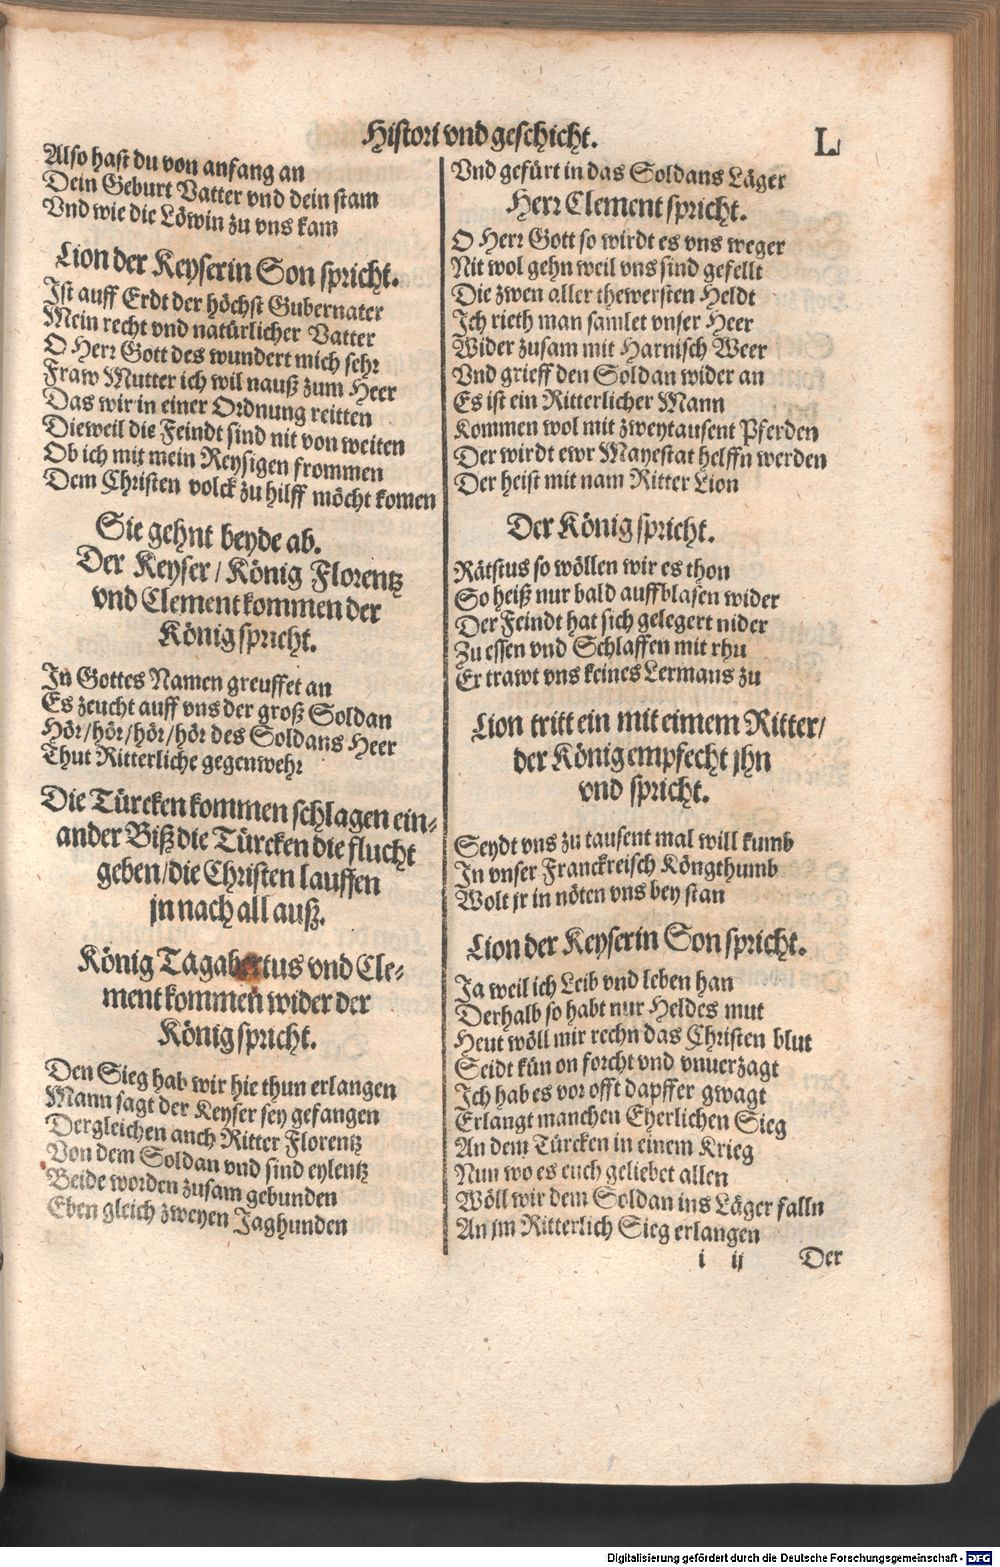 Histori vnd geschicht.
L
Also hast du von anfang an
Dein Geburt Vatter vnd dein stam
Vnd wie die Löwin zu vns kam
Lion der Keyserin Son spricht.
Ist auff Erdt der höchst Gubernater
Mein recht vnd natürlicher Vatter
O Herr Gott des wundert mich sehr
Fraw Mutter ich wil nauß zum Heer
Das wir in einer Ordnung reitten
Dieweil die Feindt sind nit von weiten
Ob ich mit mein Reysigen frommen
Dem Christen volck zu hilff möcht komen
Sie gehnt beyde ab.
Der Keyser / König Florentz
vnd Clement kommen der
König spricht.
In Gottes Namen greuffet an
Es zeucht auff vns der groß Soldan
Hör / hör / hör / hör des Soldans Heer
Thut Ritterliche gegenwehr
Die Türcken kommen schlagen ein=
ander Biß die Türcken die flucht
geben / die Christen lauffen
jn nach all auß.
König Tagabertus vnd Cle=
ment kommen wider der
König spricht.
Den Sieg hab wir hie thun erlangen
Mann sagt der Keyser sey gefangen
Dergleichen auch Ritter Florentz
Von dem Soldan vnd sind eylentz
Beide worden zusam gebunden
Eben gleich zweyen Jaghunden
Vnd gefürt in das Soldans Läger
Herr Clement spricht.
O Herr Gott so wirdt es vns weger
Nit wol gehn weil vns sind gefellt
Die zwen aller thewersten Heldt
Ich rieth man samlet vnser Heer
Wider zusam mit Harnisch Weer
Vnd grieff den Soldan wider an
Es ist ein Ritterlicher Mann
Kommen wol mit zweytausent Pferden
Der wirdt ewr Mayestat helffn werden
Der heist mit nam Ritter Lion
Der König spricht.
Rätstus so wöllen wir es thon
So heiß nur bald auffblasen wider
Der Feindt hat sich gelegert nider
Zu essen vnd Schlaffen mit rhu
Er trawt vns keines Lermans zu
Lion tritt ein mit eimem Ritter /
der König empfecht jhn
vnd spricht.
Seydt vns zu tausent mal will kumb
In vnser Franckreisch Köngthumb
Wolt jr in nöten vns bey stan
Lion der Keyserin Son spricht.
Ja weil ich Leib vnd leben han
Derhalb so habt nur Heldes mut
Heut wöll mir rechn das Christen blut
Seidt kün on forcht vnd vnuerzagt
Ich hab es vor offt dapffer gwagt
Erlangt manchen Eherlichen Sieg
An dem Türcken in einem Krieg
Nun wo es euch geliebet allen
Wöll wir dem Soldan ins Läger falln
An jm Ritterlich Sieg erlangen
i ij Der
Digitalisierung gefördert durch die Deutsche Forschungsgemeinschaft - DFG